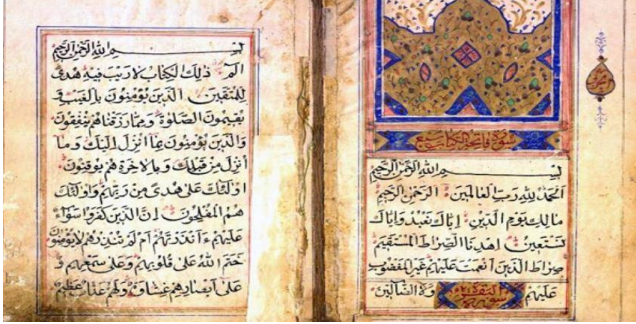 سورة فاتحة الكتاب سبع
بسم الله الرحمن الرحيم
الحمد لله رب العالمين الرحمن الرحيم
مالك يوم الدين اياك نعبد واياك
نستعين اهدنا الصراط المستقيم
صراط الذين انعمت عليهم غير المغضوب
عليهم ولا الضالين
بسم الله الرحمن الرحيم
الم ذلك الكتاب لا ريب فيه هدى
للمتقين الذين يؤمنون بالغيب و
يقيمون الصلوة ومما رزقناهم ينفقون
والذين يؤمنون بما انزل اليك وما
انزل من قبلك وبالاخرة هم يوقنون
اولئك على هدى من ربهم واولئك
هم المفلحون ان الذين كفروا سواء
عليهم ءانذرتهم ام لم تنذرهم لا يؤمنون
ختم الله على قلوبهم وعلى سمعهم و
على ابصارهم غشاوة ولهم عذاب عظيم